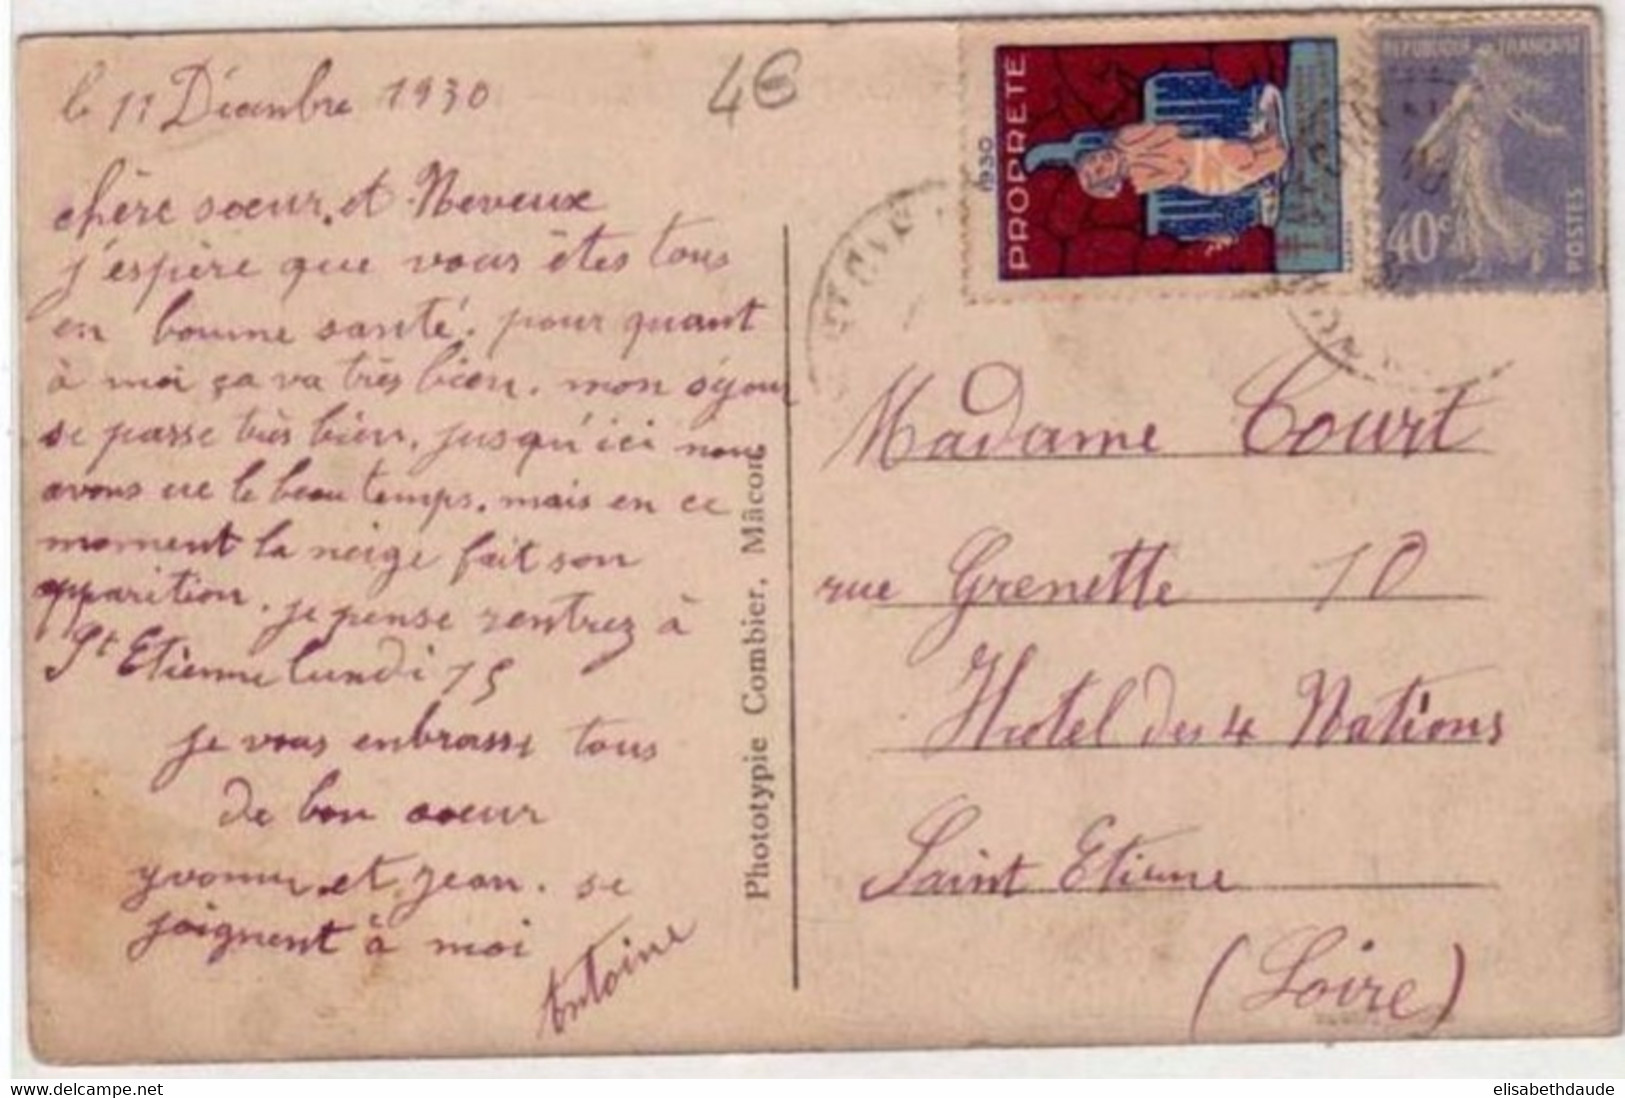 le 11 Décembre 1930
4€
chère soeur. et Neveux
j'espère que vous êtes tous
en bonne santé. pour quant
à moi ça va très bien. mon séjour
se passe très bien. jusqu'ici nous
avons ue le beau temps. mais en ce
moment la neige fait son
apparition. je pense rentrez à
St Etienne lundi 15
je vous enbrasse tous
de bon coeur
yvonne et jean. se
joignent à moi
Antoine
Phototypie Combier, Mâcon
PROPRETE
1930
REPUBLIQUE FRANÇAISE
40c
POSTES
Madame Court
rue Grenette 10
Hotel des 4 Nations
Saint Etienne
(Loire)
delcampe.net
elisabethdaude